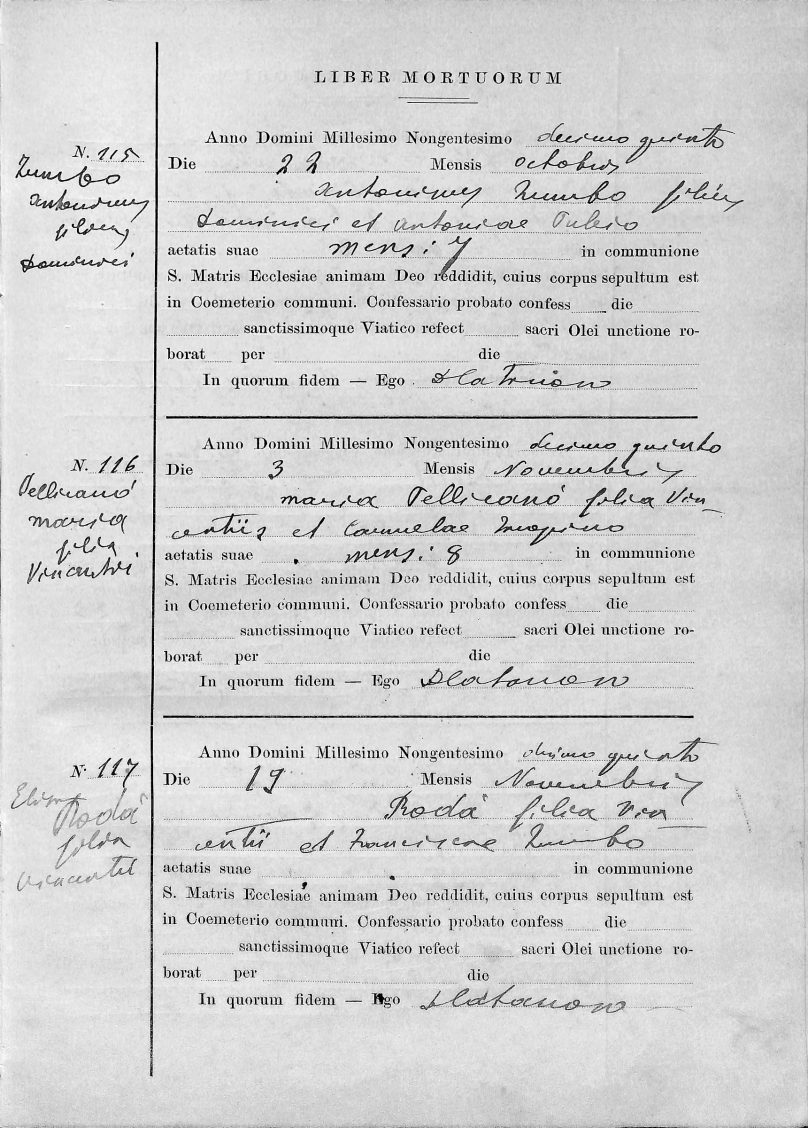 LIBER MORTUORUM
N. 115
Zumbo
Antonius
filius
Dominici
Anno Domini Millesimo Nongentesimo decimo quinto
Die 22 Mensis Octobris
Antonius Zumbo filius
Dominici et Antoniae
aetatis suae mensi 7 in communione
S. Matris Ecclesiae animam Deo reddidit, cuius corpus sepultum est
in Coemeterio communi. Confessario probato confess die
sanctissimoque Viatico refect sacri Olei unctione ro-
borat per die
In quorum fidem — Ego
N. 116
Pellicanò
Maria
filia
Vincentii
Anno Domini Millesimo Nongentesimo decimo quinto
Die 3 Mensis Novembris
Maria Pellicanò filia Vin-
centii et Carmelae
aetatis suae mensi 8 in communione
S. Matris Ecclesiae animam Deo reddidit, cuius corpus sepultum est
in Coemeterio communi. Confessario probato confess die
sanctissimoque Viatico refect sacri Olei unctione ro-
borat per die
In quorum fidem — Ego
N. 117
Rodà
filia
Vincentii
Anno Domini Millesimo Nongentesimo decimo quinto
Die 19 Mensis Novembris
Rodà filia Vin-
centii et Franciscae Zumbo
aetatis suae in communione
S. Matris Ecclesiae animam Deo reddidit, cuius corpus sepultum est
in Coemeterio communi. Confessario probato confess die
sanctissimoque Viatico refect sacri Olei unctione ro-
borat per die
In quorum fidem — Ego